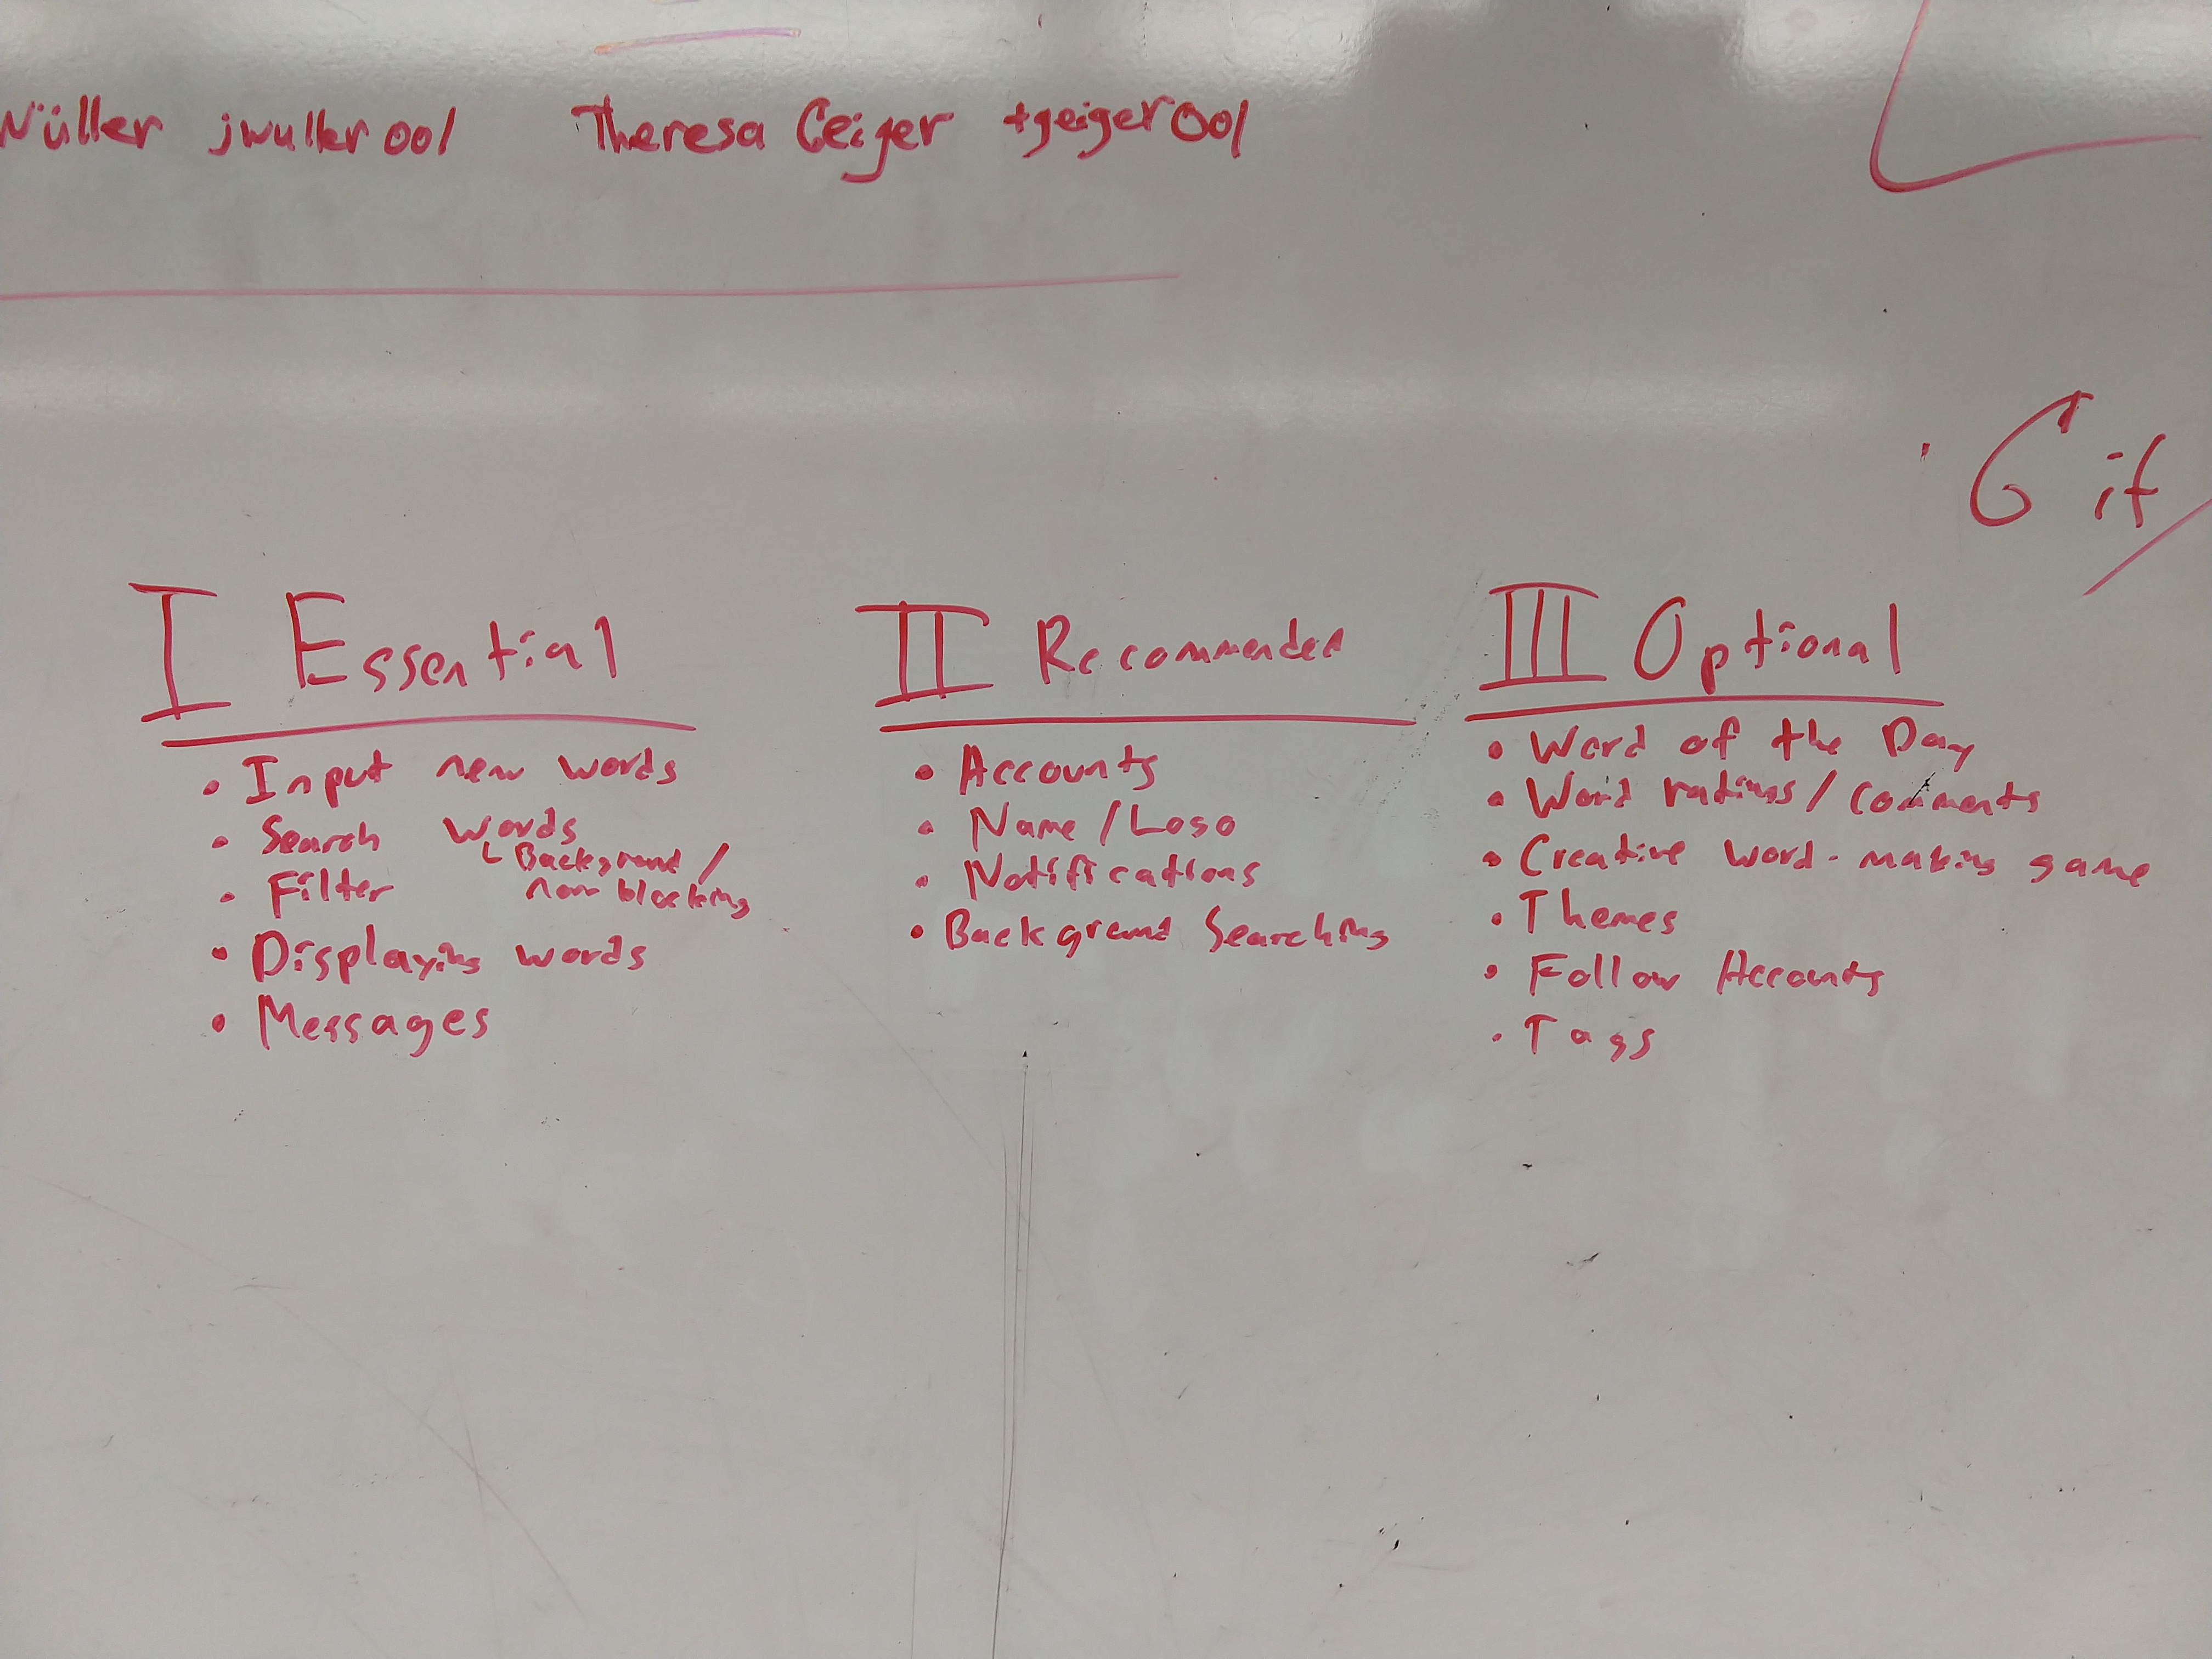 Nüller jwuller001 Theresa Geiger tgeiger001
Gif
I Essential
• Input new words
• Search words
└ Background / non blocking
• Filter
• Displaying words
• Messages
II Recommended
• Accounts
• Name / Logo
• Notifications
• Background Searching
III Optional
• Word of the Day
• Word ratings / comments
• Creative word-making game
• Themes
• Follow Accounts
• Tags